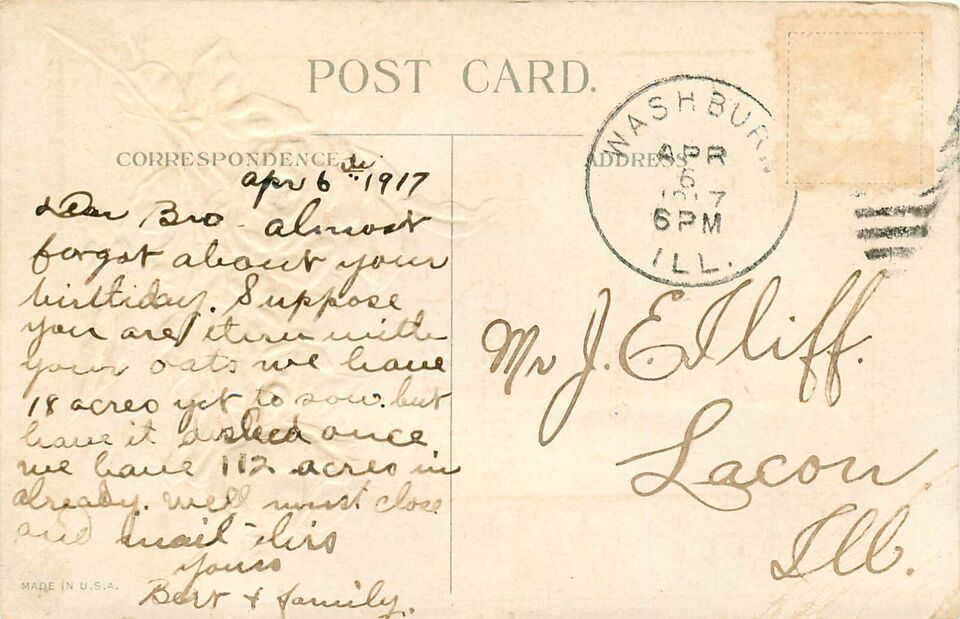 POST CARD.
CORRESPONDENCE
ADDRESS
WASHBURN
APR
6
1917
6PM
ILL.
Apr 6th 1917
Dear Bro almost
forgot about your
birthday. Suppose
you are with
your oats we have
18 acres yet to sow. but
have it disked once
we have 112 acres in
already. Well must close
and mail this
yours
Bert & family.
Mr J. E. Iliff.
Lacon.
Ill.
MADE IN U.S.A.